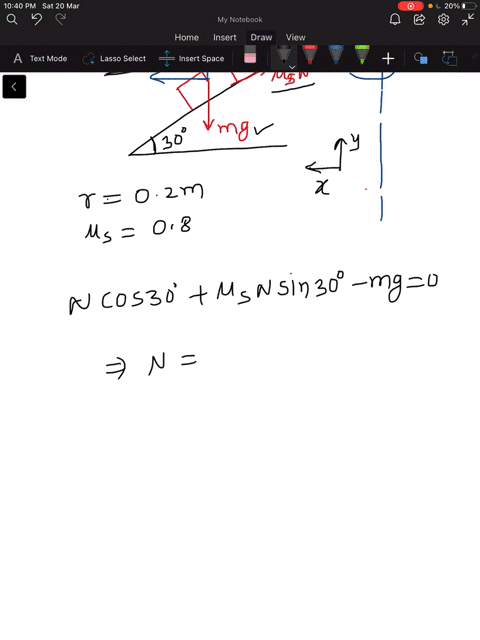 10:40 PM Sat 20 Mar
20%
My Notebook
Home Insert Draw View
Text Mode Lasso Select Insert Space
μsN
mg ✓
30°
y
x
r = 0.2m
μs = 0.8
N cos30° + μsN sin30° - mg = 0
⇒ N =